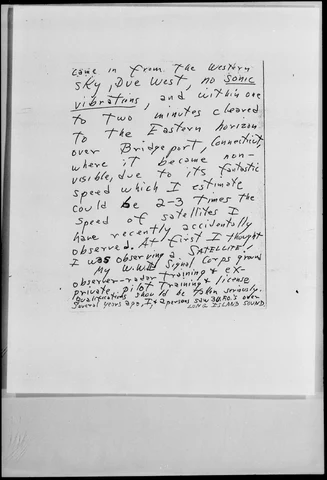 came in from the Western
sky, Due West, no sonic
vibrations, and within one
to two minutes cleared
to the Eastern horizon
over Bridgeport, Connecticut,
where it became non-
visible, due to its fantastic
speed which I estimate
could be 2-3 times the
speed of satellites I
have recently accidentally
observed. At first I thought
I was observing a SATELLITE!
My W.W.II Signal Corps ground
observer-radar training & ex-
private pilot Training & license
qualifications should be taken seriously.
Several years ago, I, & 2 persons saw 3 U.F.O.'s over
LONG ISLAND SOUND.